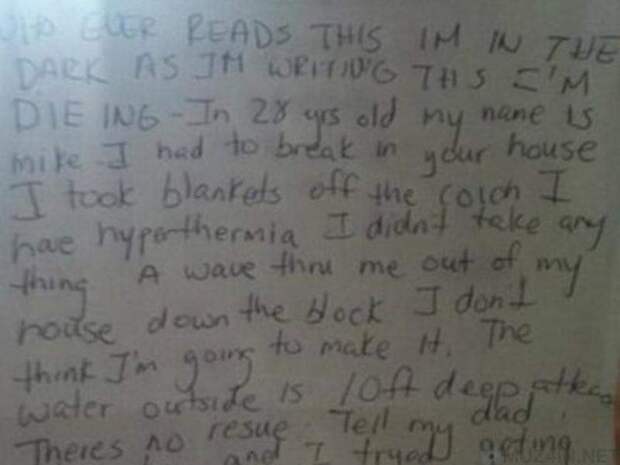 WHO EVER READS THIS IM IN THE
DARK AS I'M WRITING THS I'M
DIE ING - In 28 yrs old my name is
mike - I had to break in your house
I took blankets off the coich I
hae hypothermia I didn't take any
thing A wave thru me out of my
house down the block I don't
think I'm going to make it. The
water outside is 10ft deep at
Theres no resue. Tell my dad
and I tryed geting